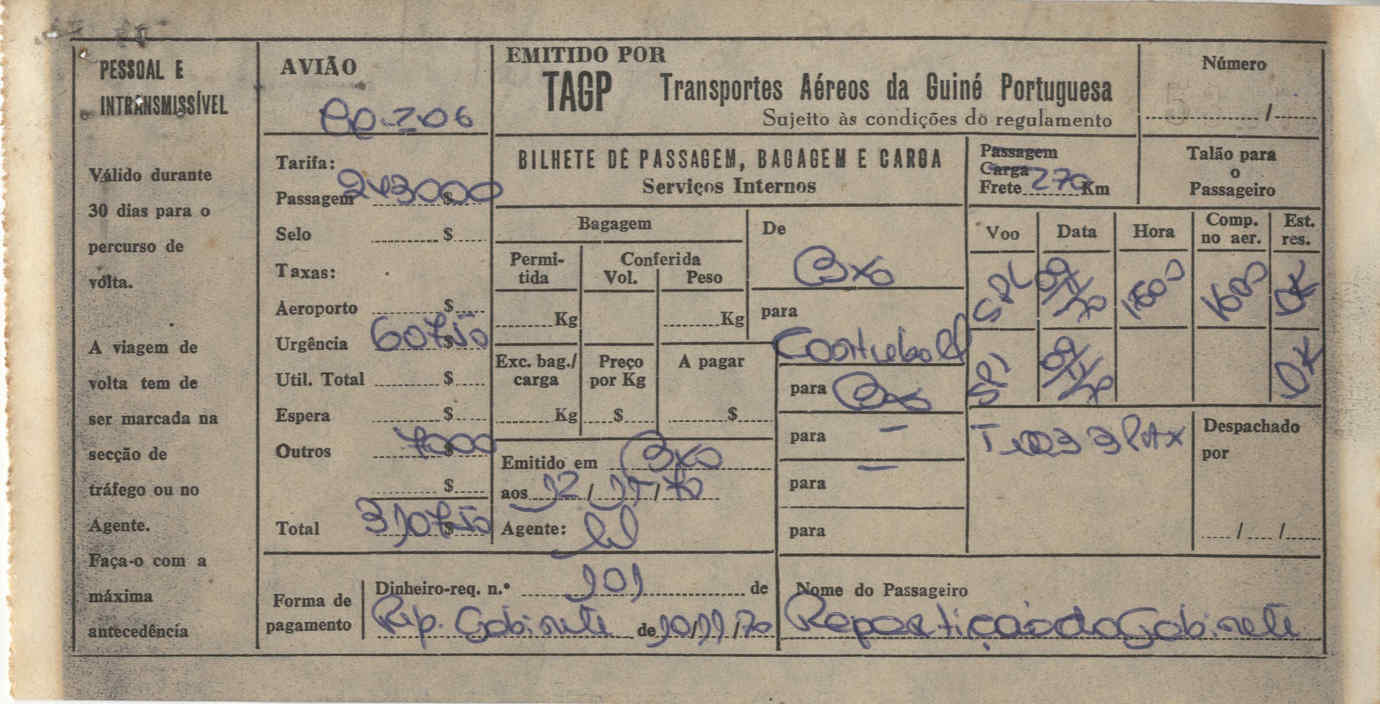 PESSOAL E
INTRANSMISSÍVEL
Válido durante
30 dias para o
percurso de
volta.
A viagem de
volta tem de
ser marcada na
secção de
tráfego ou no
Agente.
Faça-o com a
máxima
antecedência
AVIÃO
Tarifa:
Passagem 243000 $
Selo $
Taxas:
Aeroporto $
Urgência 607$50
Util. Total $
Espera $
Outros 7000
$
Total 3107$50
EMITIDO POR
TAGP Transportes Aéreos da Guiné Portuguesa
Sujeito às condições do regulamento
Número
/
BILHETE DE PASSAGEM, BAGAGEM E CARGA
Serviços Internos
Passagem
Carga
Frete 270 Km
Talão para
o
Passageiro
Bagagem
Permi-
tida
Conferida
Vol. Peso
Kg Kg
Exc. bag./
carga
Preço
por Kg
A pagar
Kg $ $
De
Bxo
para
para Bxo
para —
para —
para
Voo Data Hora Comp.
no aer. Est.
res.
1500 1600 OK
OK
3 PAX
Despachado
por
/ /
Emitido em Bxo
aos 12/11/70
Agente:
Forma de
pagamento
Dinheiro-req. n.º 101 de
Rep. Gabinete de 10/11/70
Nome do Passageiro
Repartição do Gabinete